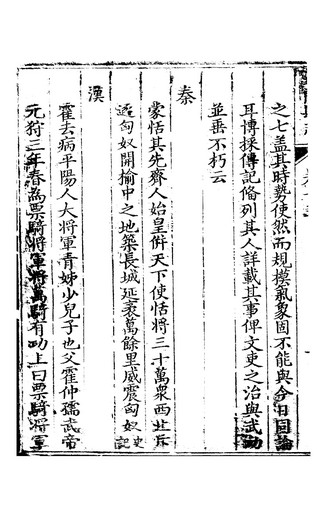 之七蓋其時勢使然而規模氣象固不能與今日同論
耳博採傳記俻列其人詳載其事俾文吏之治與武勳
並垂不朽云
秦
蒙恬其先齊人始皇併天下使恬將三十萬衆西北斥
逐匈奴開榆中之地築長城延袤萬餘里威震匈奴史記
漢
霍去病平陽人大將軍青姊少兒子也父霍仲孺武帝
元狩三年春為票騎將軍將萬騎有功上曰票騎將軍